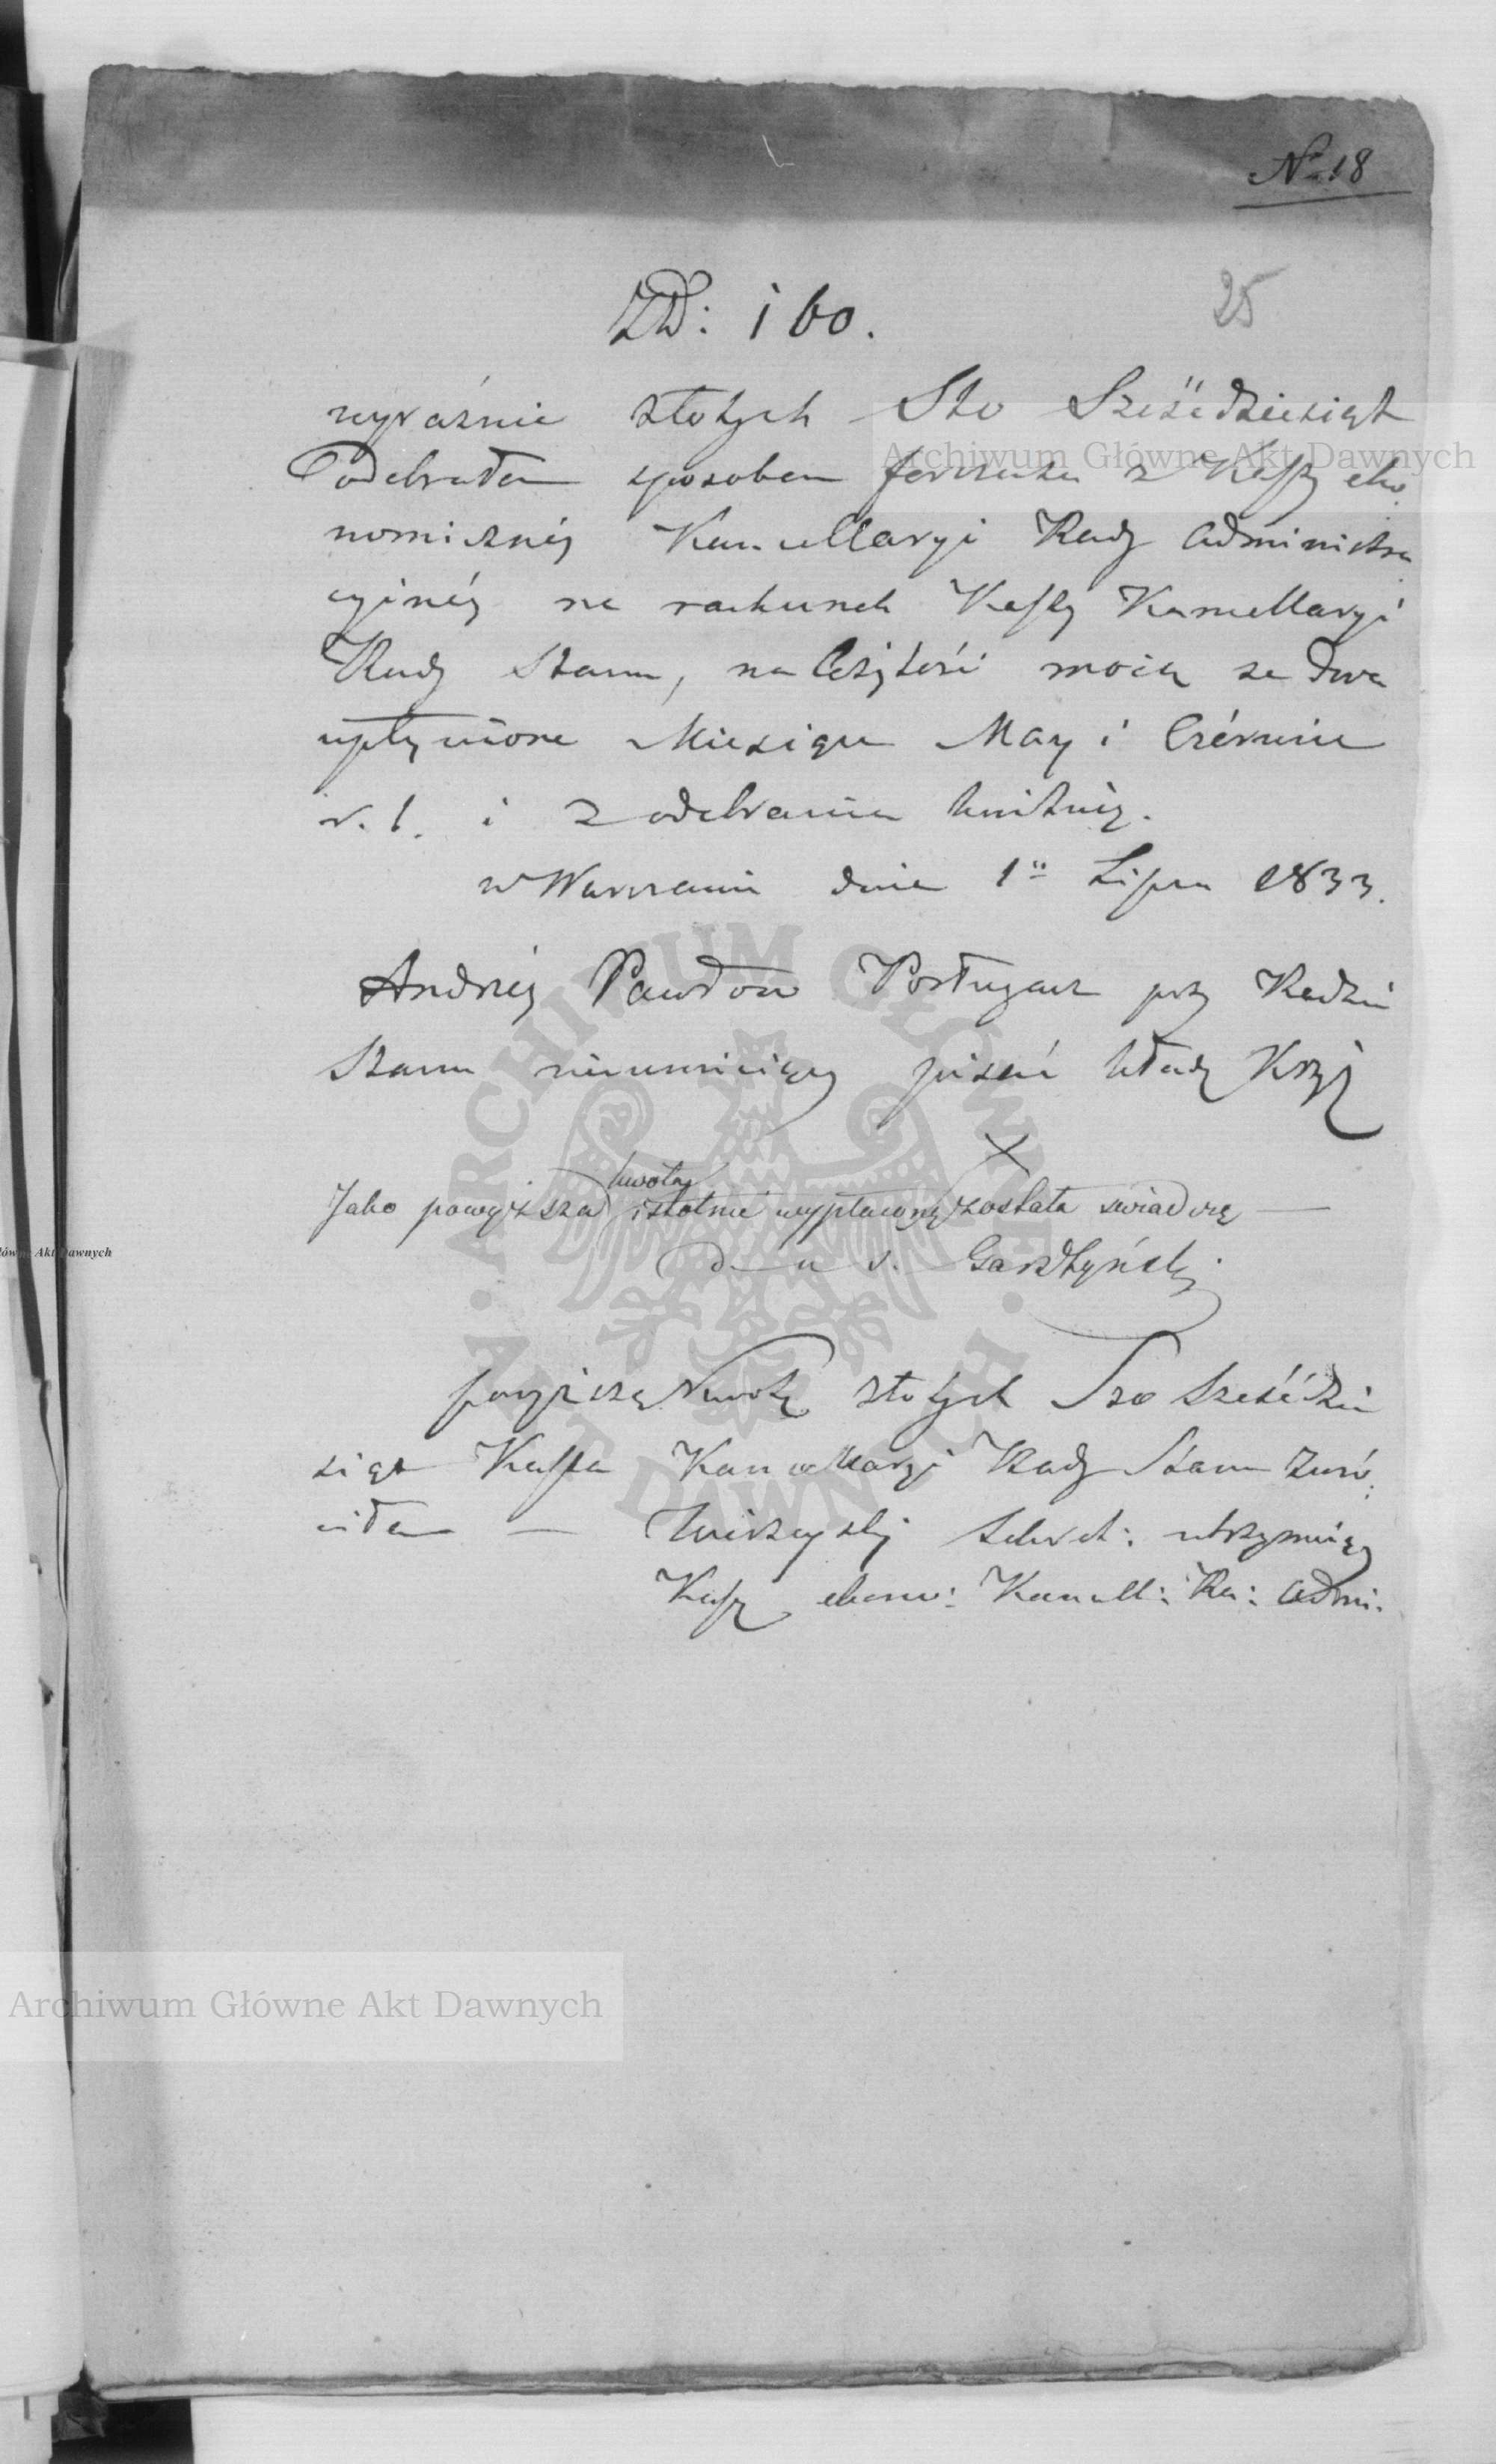 N 18
25
Złł: 160.
wyraźnie złotych Sto Sześćdziesiąt
Odebrałem sposobem forszusu z Kassy eko
nomicznéj Kancellaryi Rady Administra
cyjnéj na rachunek Kassy Kancellaryi
Rady Stanu, należytość moią za dwa
upłynione Miesiące May i Czérwiec
r. b. i z odebrania kwituię.
w Warszawie dnia 1º Lipca 1833.
Andrzéj Pawłow Posługacz przy Radzie
Stanu nieumieiący pisać kładę Krzyż
X
Jako powyższa kwota istotnie wypłaconą została świadczę —
Gardłyński
powyższą kwotę złotych Sto Sześćdzie
siąt Kassa Kancellaryi Rady Stanu zwró
ciła — Sekret: utrzymuiący
Kassę ekono: Kancell: Ra: Admi.
Archiwum Główne Akt Dawnych
Archiwum Główne Akt Dawnych
łówne Akt Dawnych
ARCHIWUM GŁÓWNE AKT DAWNYCH